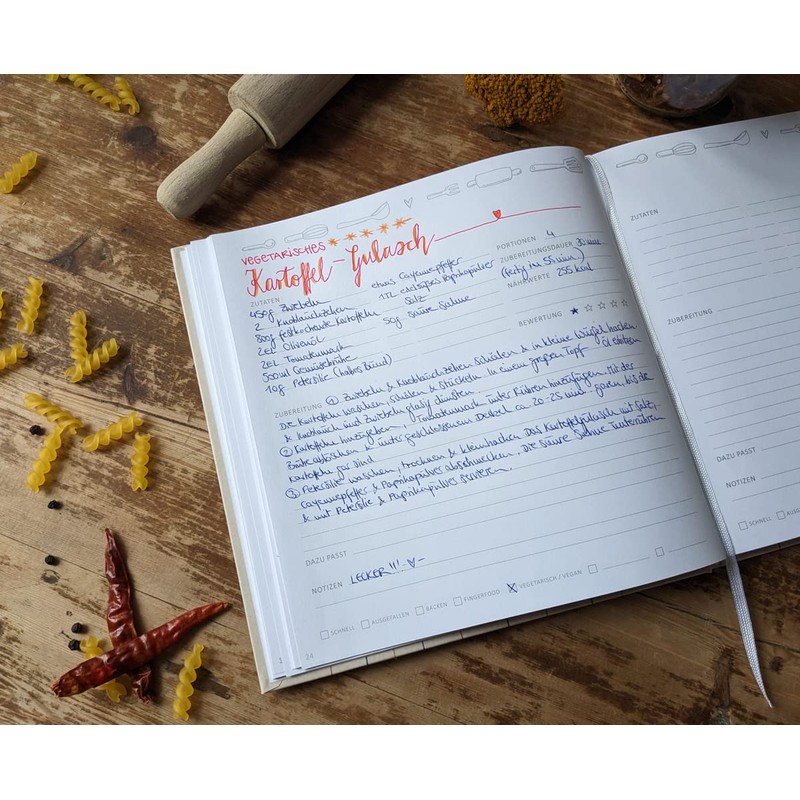 VEGETARISCHES
Kartoffel-Gulasch
PORTIONEN 4
ZUBEREITUNGSDAUER 30 min
(fertig in 55 min)
NÄHRWERTE 255 kcal
BEWERTUNG
ZUTATEN
450g Zwiebeln
2 Knoblauchzehen
800g festkochende Kartoffeln
2EL Olivenöl
2EL Tomatenmark
500ml Gemüsebrühe
10g Petersilie (halbes Bund)
etwas Cayennepfeffer
1TL edelsüßes Paprikapulver
Salz
50g saure Sahne
ZUBEREITUNG ① Zwiebeln & Knoblauchzehen schälen & in kleine Würfel hacken
Die Kartoffeln waschen, schälen & stückeln. In einem großen Topf Öl erhitzen
& Knoblauch und Zwiebeln glasig dünsten.
② Kartoffeln hinzugeben, Tomatenmark unter Rühren hinzufügen. Mit der
Brühe ablöschen & unter geschlossenem Deckel ca. 20-25 min garen, bis die
Kartoffeln gar sind.
③ Petersilie waschen, trocknen & kleinhacken. Das Kartoffelgulasch mit Salz,
Cayennepfeffer & Paprikapulver abschmecken, die saure Sahne unterrühren
& mit Petersilie & Paprikapulver servieren.
DAZU PASST
NOTIZEN LECKER!!!
SCHNELL AUSGEFALLEN BACKEN FINGERFOOD X VEGETARISCH / VEGAN
24
ZUTATEN
ZUBEREITUNG
DAZU PASST
NOTIZEN
SCHNELL AUSGEFALLEN